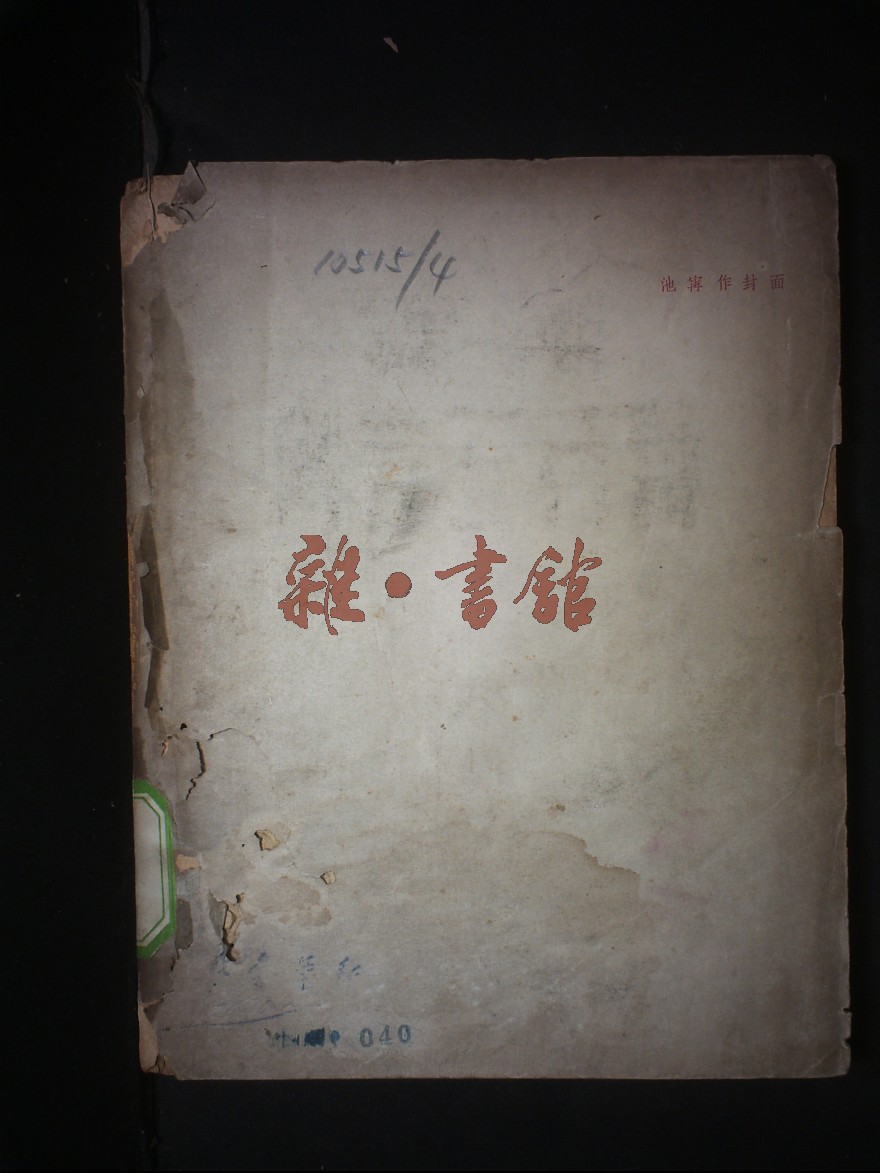 10515/4
池寗作封面
雜•書館
040